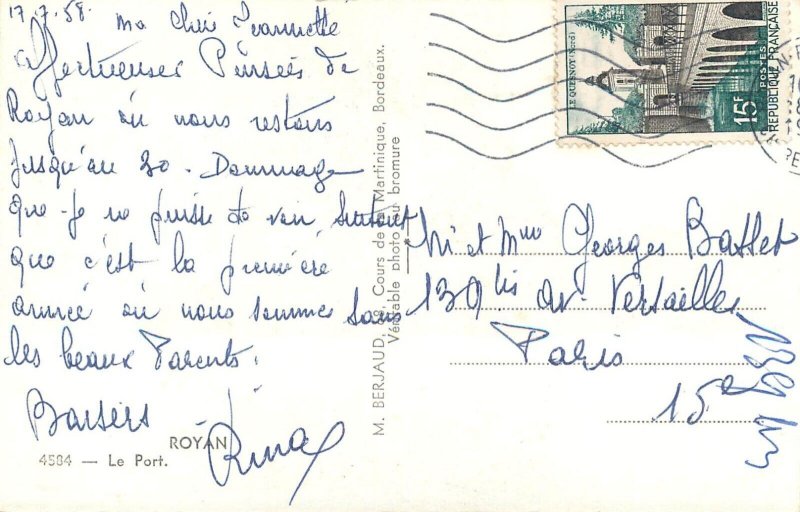 17.7.58. ma chère Jeannette
Affectueuses Pensées de
Royan où nous restons
jusqu'au 30. Dommage
que je ne puisse te voir surtout
que c'est la première
année où nous sommes sans
les beaux Parents.
Baisers
ROYAN
4584 — Le Port.
M. BERJAUD, Cours de la Martinique, Bordeaux.
Véritable photo au bromure
LE QUESNOY (Nord)
15F
POSTES
REPUBLIQUE FRANÇAISE
Mr et Mme Georges Battet
139bis av. Versailles
Paris
15e